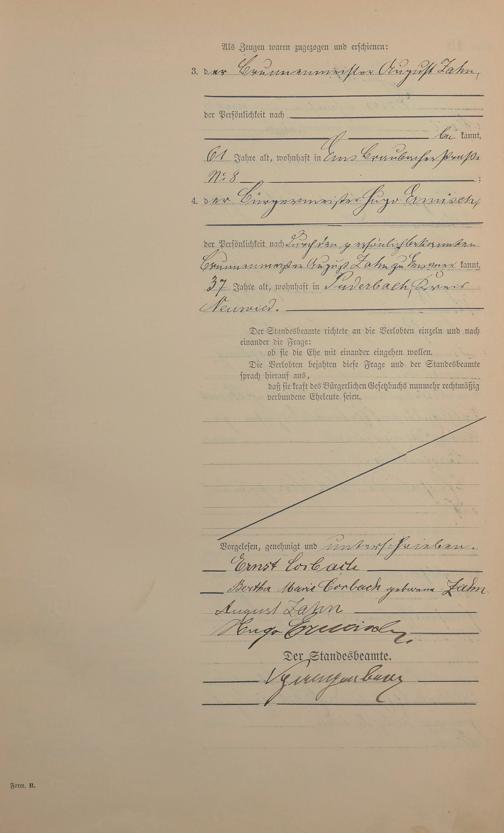 Als Zeugen waren zugezogen und erschienen:
3. der Brunnenmeister August Zahn,
der Persönlichkeit nach
bekannt,
61 Jahre alt, wohnhaft in Ems Braubacher Straße
Nr. 8 ;
4. der Bürgermeister Hugo
der Persönlichkeit nach durch den persönlich bekannten
Brunnenmeister August Zahn zu kannt,
37 Jahre alt, wohnhaft in Puderbach, Kreis
Neuwied.
Der Standesbeamte richtete an die Verlobten einzeln und nach
einander die Frage:
ob sie die Ehe mit einander eingehen wollen.
Die Verlobten bejahten diese Frage und der Standesbeamte
sprach hierauf aus,
daß sie kraft des Bürgerlichen Gesetzbuchs nunmehr rechtmäßig
verbundene Eheleute seien.
Vorgelesen, genehmigt und unterschrieben.
Ernst Corbach
Bertha Marie Corbach geborene Zahn
August Zahn
Hugo
Der Standesbeamte.
Form. B.